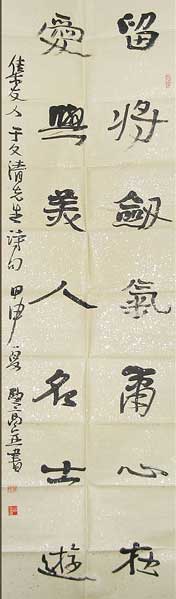 留將劍氣心
愛與美人名士遊
集友人于清先生詩句 甲申夏 書